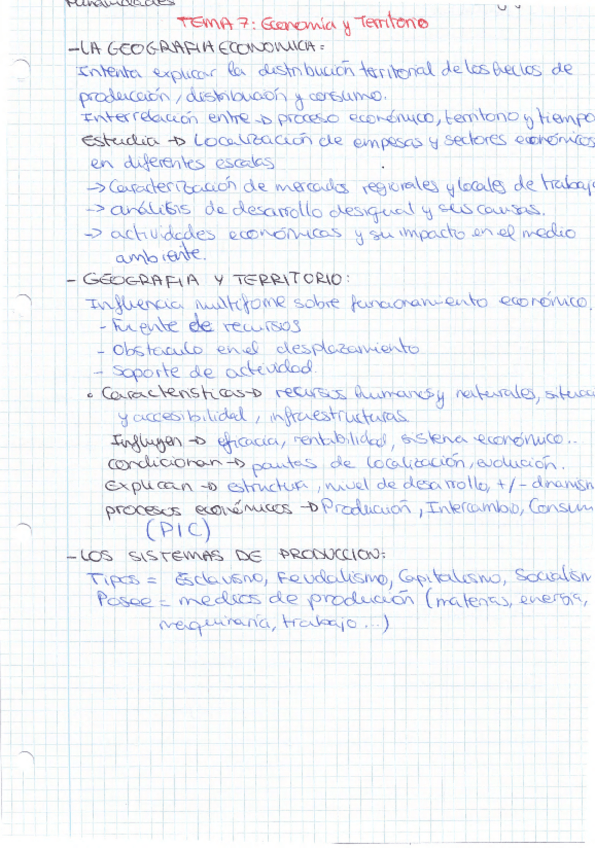 Humanidades
TEMA 7: Economía y Territorio
- LA GEOGRAFIA ECONOMICA:
Intenta explicar la distribución territorial de los hechos de
producción, distribución y consumo.
Interrelación entre → proceso económico, territorio y tiempo
Estudia → Localización de empesas y sectores económicos
en diferentes escalas
→ Caracterización de mercados regionales y locales de trabajo
→ análisis de desarrollo desigual y sus causas.
→ actividades económicas y su impacto en el medio
ambiente.
- GEOGRAFIA Y TERRITORIO:
Influencia multiforme sobre funcionamiento económico.
- Fuente de recursos
- Obstaculo en el desplazamiento
- Soporte de actividad.
• Características → recursos humanos y naturales, situac
y accesibilidad, infraestructuras
Influyen → eficacia, rentabilidad, sistena económico..
condicionan → pautas de localización, evolución.
Explican → estructura, nivel de desarrollo, +/- dinamism
procesos económicos → Producción, Intercambio, Consum
(PIC)
- LOS SISTEMAS DE PRODUCCION:
Tipos = Esclavismo, Feudalismo, Capitalismo, Socialism
Posee = medios de produción (materias, energía,
maquinaria, trabajo...)